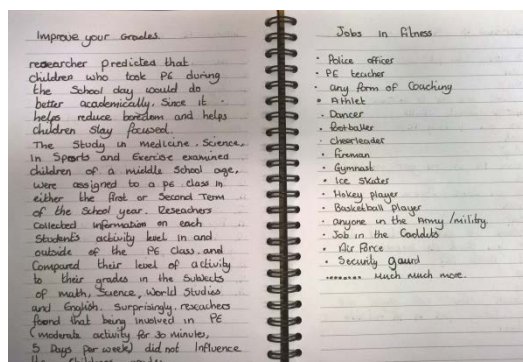 Improve your Grades.
researcher predicted that
children who took PE during
the School day would do
better academically. Since it
helps reduce boredom and helps
children Stay focused.
The Study in medicine. Science,
in Sports and Exercise examined
children of a middle School age,
were assigned to a PE class in
either the first or Second Term
of the School year. Reseachers
Collected information on each
Students activity level in and
outside of the PE Class. and
Compared their level of activity
to their grades in the Subjects
of math, Science, World Studies
and English. Surprisingly, reseachers
found that being involved in PE
(moderate activity for 30 minutes,
5 Days per week) did not Influence
Jobs in Fitness
· Police officer
· PE teacher
· any form of Coaching
· Athlet
· Dancer
· footballer
· cheerleader
· fireman
· Gymnast
· Ice Skater
· Hokey player
· Basketball player
· anyone in the Army / militry.
· Job in the Caddets
· Air Force
· Security gaurd
........ Much much more.